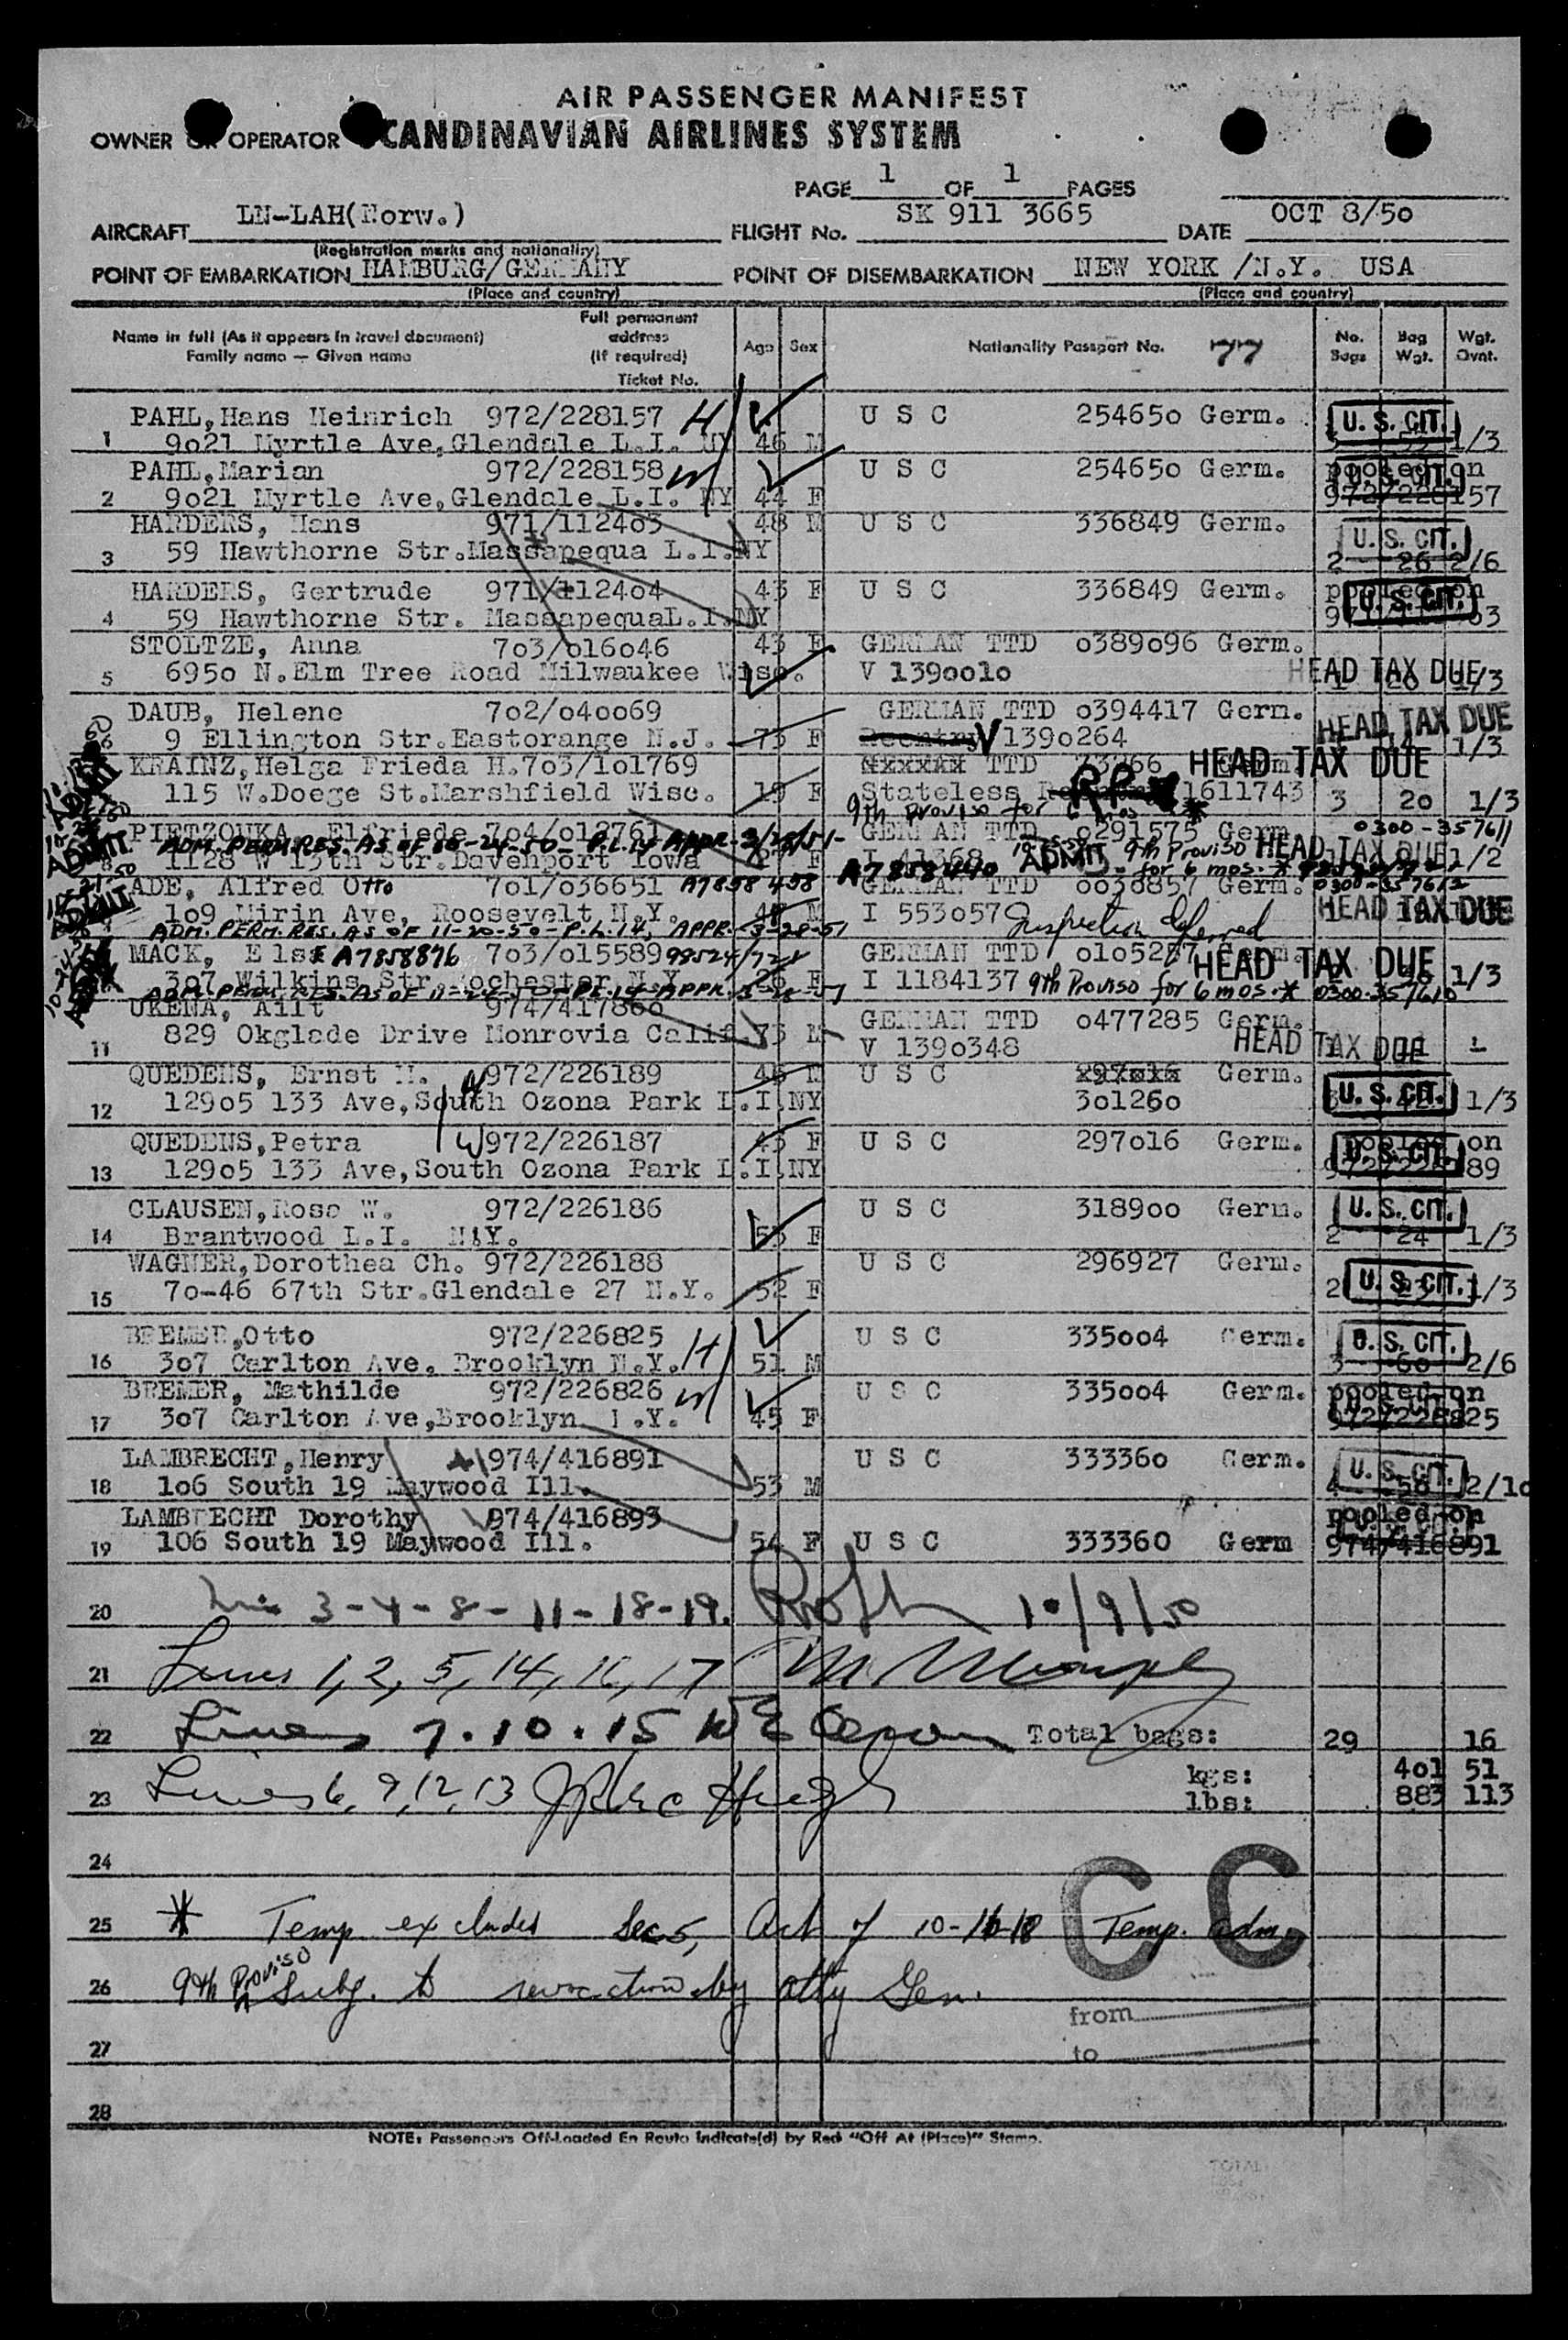 AIR PASSENGER MANIFEST
OWNER OR OPERATOR SCANDINAVIAN AIRLINES SYSTEM
PAGE 1 OF 1 PAGES
AIRCRAFT LN-LAH(Norw.) FLIGHT No. SK 911 3665 DATE OCT 8/5o
(Registration marks and nationality)
POINT OF EMBARKATION HAMBURG/GERMANY POINT OF DISEMBARKATION NEW YORK /N.Y. USA
(Place and country) (Place and country)
Name in full (As it appears in travel document) Family name — Given name Full permanent address (If required) Ticket No. Age Sex Nationality Passport No. 77 No. Bags Bag Wgt. Wgt. Ovnt.
PAHL,Hans Heinrich 972/228157 H U S C 25465o Germ. U. S. CIT.
1 9o21 Myrtle Ave,Glendale L.I. NY 46 M 1/3
PAHL,Marian 972/228158 W U S C 25465o Germ. pooled on U. S. CIT.
2 9o21 Myrtle Ave,Glendale L.I. NY 44 F 972/228157
HARDERS, Hans 971/1124o3 48 M U S C 336849 Germ. U. S. CIT.
3 59 Hawthorne Str.Massapequa L.I.NY 2 26 2/6
HARDERS, Gertrude 971/1124o4 43 F U S C 336849 Germ. pooled on U. S. CIT.
4 59 Hawthorne Str. MassapequaL.I.NY
STOLTZE, Anna 7o3/o16o46 43 F GERMAN TTD o389o96 Germ.
5 695o N.Elm Tree Road Milwaukee Wisc. V 139oo1o HEAD TAX DUE 1/3
DAUB, Helene 7o2/o4oo69 GERMAN TTD o394417 Germ.
6 9 Ellington Str.Eastorange N.J. 73 F Reentry V 139o264 HEAD TAX DUE 1/3
KRAINZ,Helga Frieda H.7o3/1o1769 TTD HEAD TAX DUE
115 W.Doege St.Marshfield Wisc. 19 F Stateless 1611743 3 2o 1/3
9th Proviso for 6 mos *
PIETZOUKA, Elfriede 7o4/o12761 GERMAN TTD o291575 Germ. 0300-357611
ADM. PERM. RES. AS OF P.L. 14 APPR.
8 1128 W 15th Str.Davenport Iowa F I 41368 ADMIT 9th Proviso for 6 mos. * HEAD TAX DUE 1/2
ADE, Alfred Otto 7o1/o36651 A7858458 A7858440 GERMAN TTD oo36857 Germ. 0300-357612
1o9 Mirin Ave, Roosevelt N.Y. M I 553o57 Inspection deferred HEAD TAX DUE
ADM. PERM. RES. AS OF 11-20-50 - P.L. 14, APPR. 3-28-51
MACK, Else A7858876 7o3/o15589 GERMAN TTD o1o5257 HEAD TAX DUE
3o7 Wilkins Str.Rochester N.Y. 26 F I 1184137 9th Proviso for 6 mos.* 0300-357610 1/3
UKENA, Ailt 974/41786o GERMAN TTD o477285 Germ.
11 829 Okglade Drive Monrovia Calif.73 M V 139o348 HEAD TAX DUE
QUEDENS, Ernst H. H 972/226189 46 M U S C Germ.
12 129o5 133 Ave,South Ozona Park L.I.NY 3o126o U. S. CIT. 1/3
QUEDENS,Petra W 972/226187 43 F U S C 297o16 Germ. pooled on U. S. CIT.
13 129o5 133 Ave,South Ozona Park L.I.NY 972/226189
CLAUSEN,Rose W. 972/226186 U S C 3189oo Germ. U. S. CIT.
14 Brantwood L.I. N.Y. 53 F 2 24 1/3
WAGNER,Dorothea Ch. 972/226188 U S C 296927 Germ.
15 7o-46 67th Str.Glendale 27 N.Y. 52 F 2 U. S. CIT. 1/3
BREMER,Otto 972/226825 U S C 335oo4 Germ. U. S. CIT.
16 3o7 Carlton Ave, Brooklyn N.Y. H 51 M 3 6o 2/6
BREMER, Mathilde 972/226826 W U S C 335oo4 Germ. pooled on
17 3o7 Carlton Ave,Brooklyn N.Y. 45 F 972/226825
LAMBRECHT,Henry H 974/416891 U S C 33336o Germ. U. S. CIT.
18 1o6 South 19 Maywood Ill. 53 M 4 2/1o
LAMBRECHT Dorothy W 974/416893 pooled on
19 106 South 19 Maywood Ill. 54 F U S C 333360 Germ 974/416891
20 3-4-8-11-18-19. 10/9/50
21 Lines 1, 2, 5, 14, 16, 17
22 Lines 7.10.15 Total bags: 29 16
kgs: 4o1 51
23 Lines 6, 9, 12, 13 lbs: 883 113
24
C C
25 * Temp excluded Sec 5, Act of 10-16-18 Temp. adm.
26 9th Proviso Subj. to revocation by atty Gen.
from
27 to
28
NOTE: Passengers Off-Loaded En Route Indicate(d) by Red "Off At (Place)" Stamp.